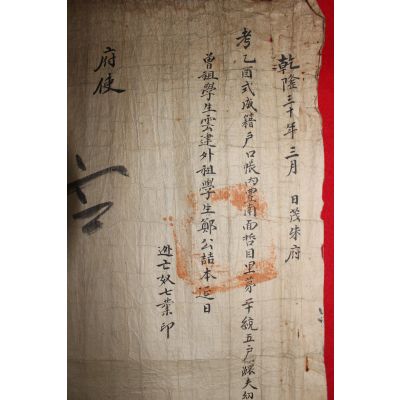 乾隆三十年三月 日茂朱府
考乙酉式成籍戶口帳內豊南面哲目里第 十統五戶 夫幼
曾祖學生雲達外祖學生鄭公喆本延日
逃亡奴七業印
府使